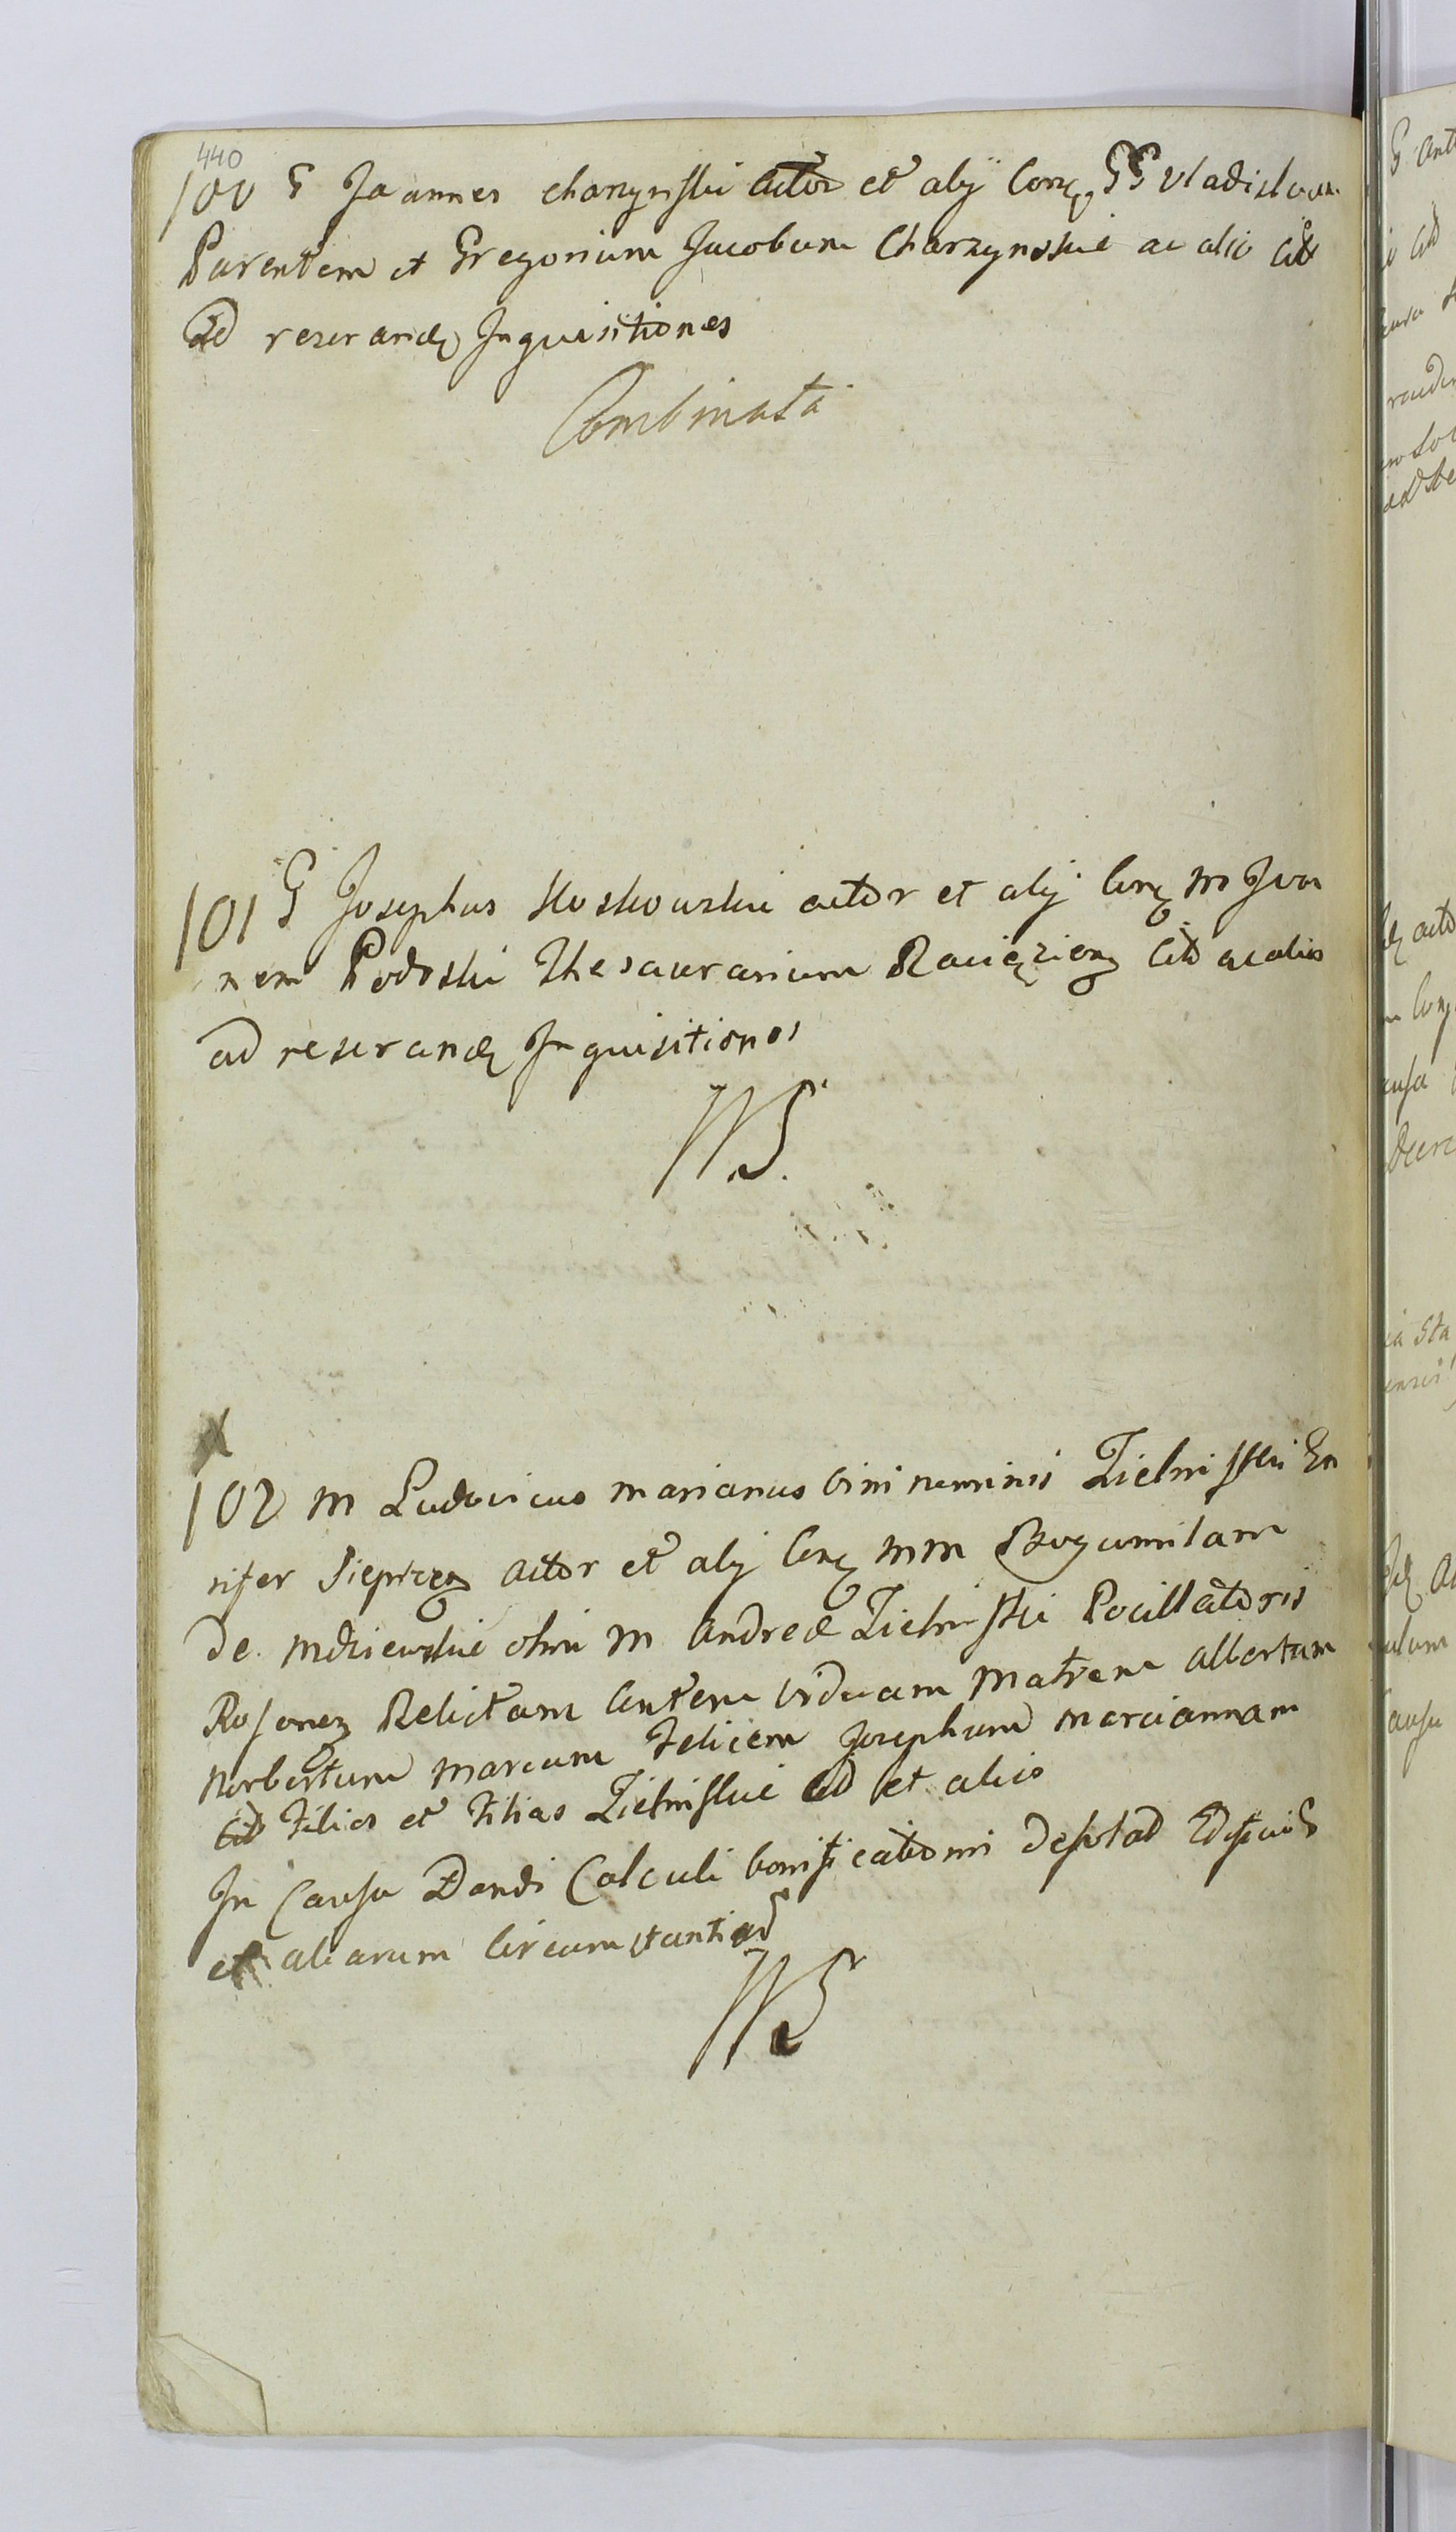 440
100 G Joannes Charzynski Actor et alij Conq GG Vladislaum
Parentem et Gregorium Jacobum Charzynskie ac alio Cit
ad reserandq Inquisitiones
Combinata
101 G Josephus Koskowski actor et alij Conq M Joan
nem Podoski Thesaurarium Raciązieng Cit ac alios
ad reserandq Inquisitiones
WS.
102 M Ludovicus Marianus bini nominis Zielinski En
sifer Sieprceng Actor et alij Conq MM Bogumilam
de Mdziewskie olim M Andreæ Zielinski Pocillatoris
Rosoneng Relictam autem viduam Matrem Albertum
Norbertum Marcum Felicem Josephum Marciannam
Cit Filios et Filias Zielinskie et alios
In Causa Dandi Calculi bonificationis
et aliarum Circumstantiar
WS